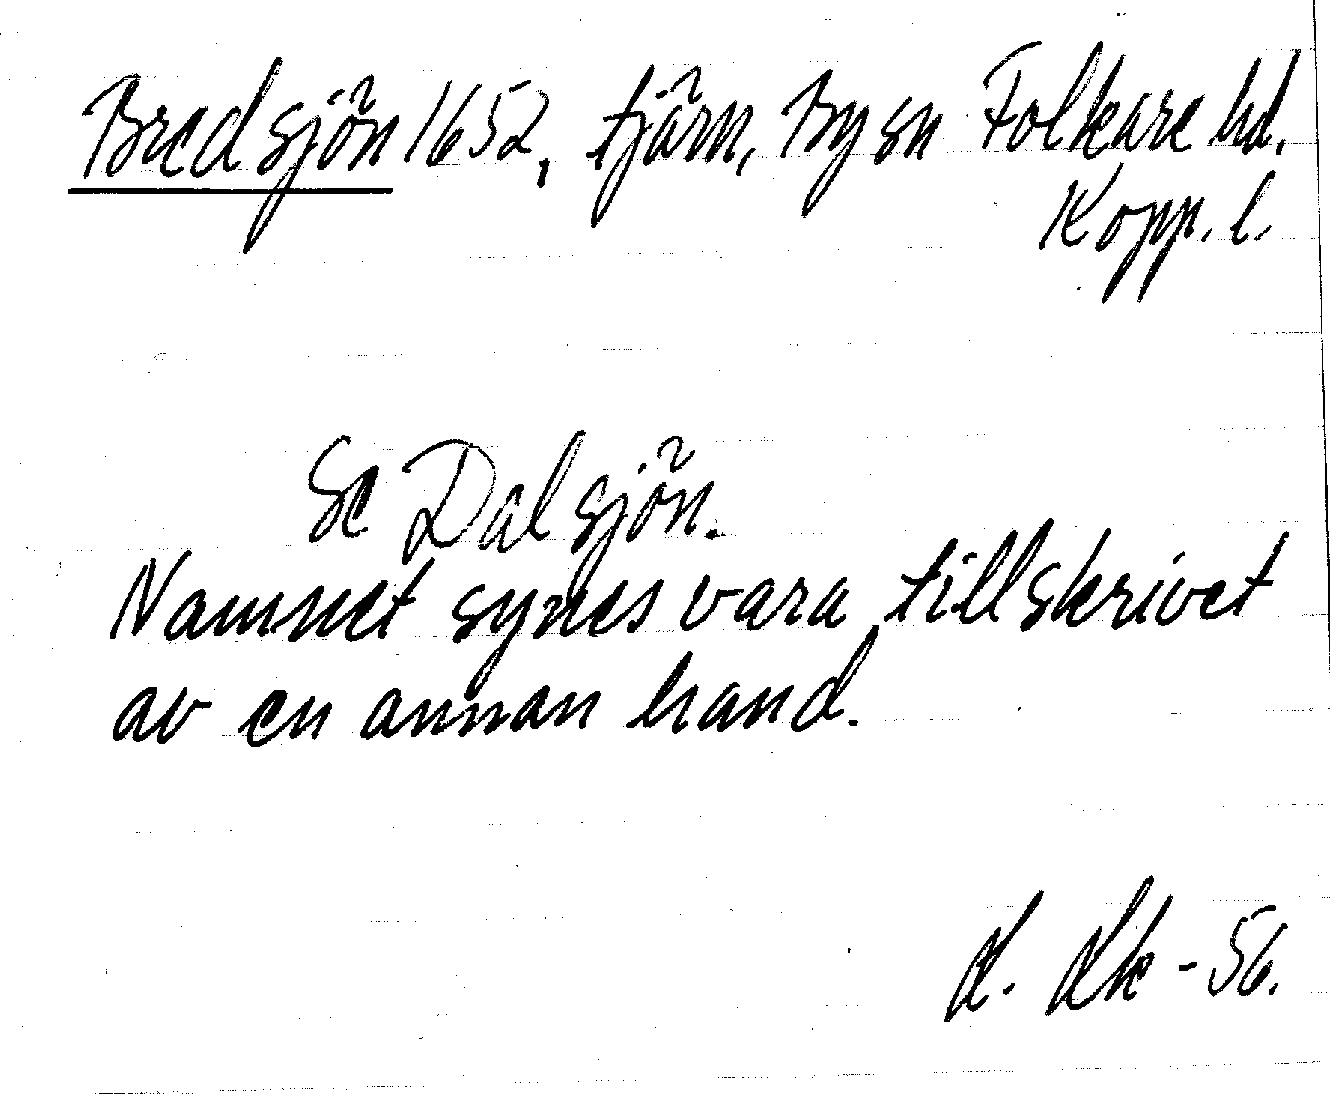 Bredsjön 1652, tjärn, By sn Folkare hd.
Kopp. l.
Se Dalsjön.
Namnet synes vara tillskrivet
av en annan hand.
-56.